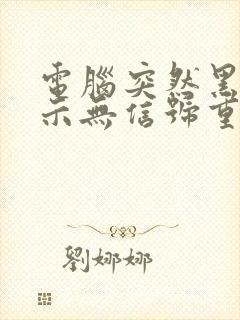 電腦突然黑
示無信號重
劉娜娜